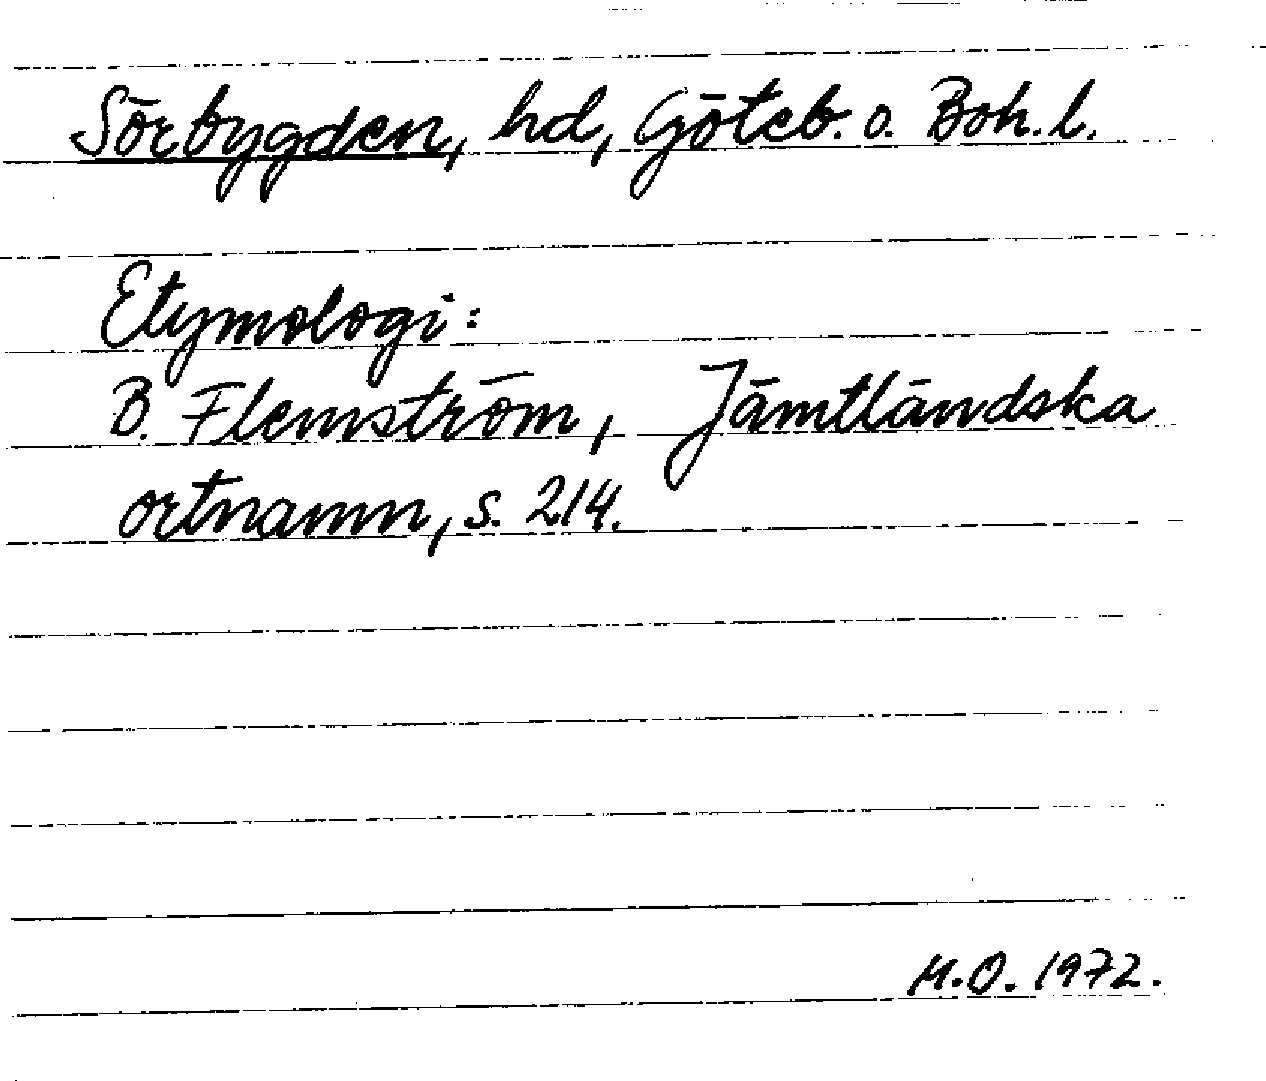 Sörbygden, hd, Göteb. o. Boh. l.
Etymologi:
B. Flemström, Jämtländska
ortnamn, s. 214.
M.O. 1972.